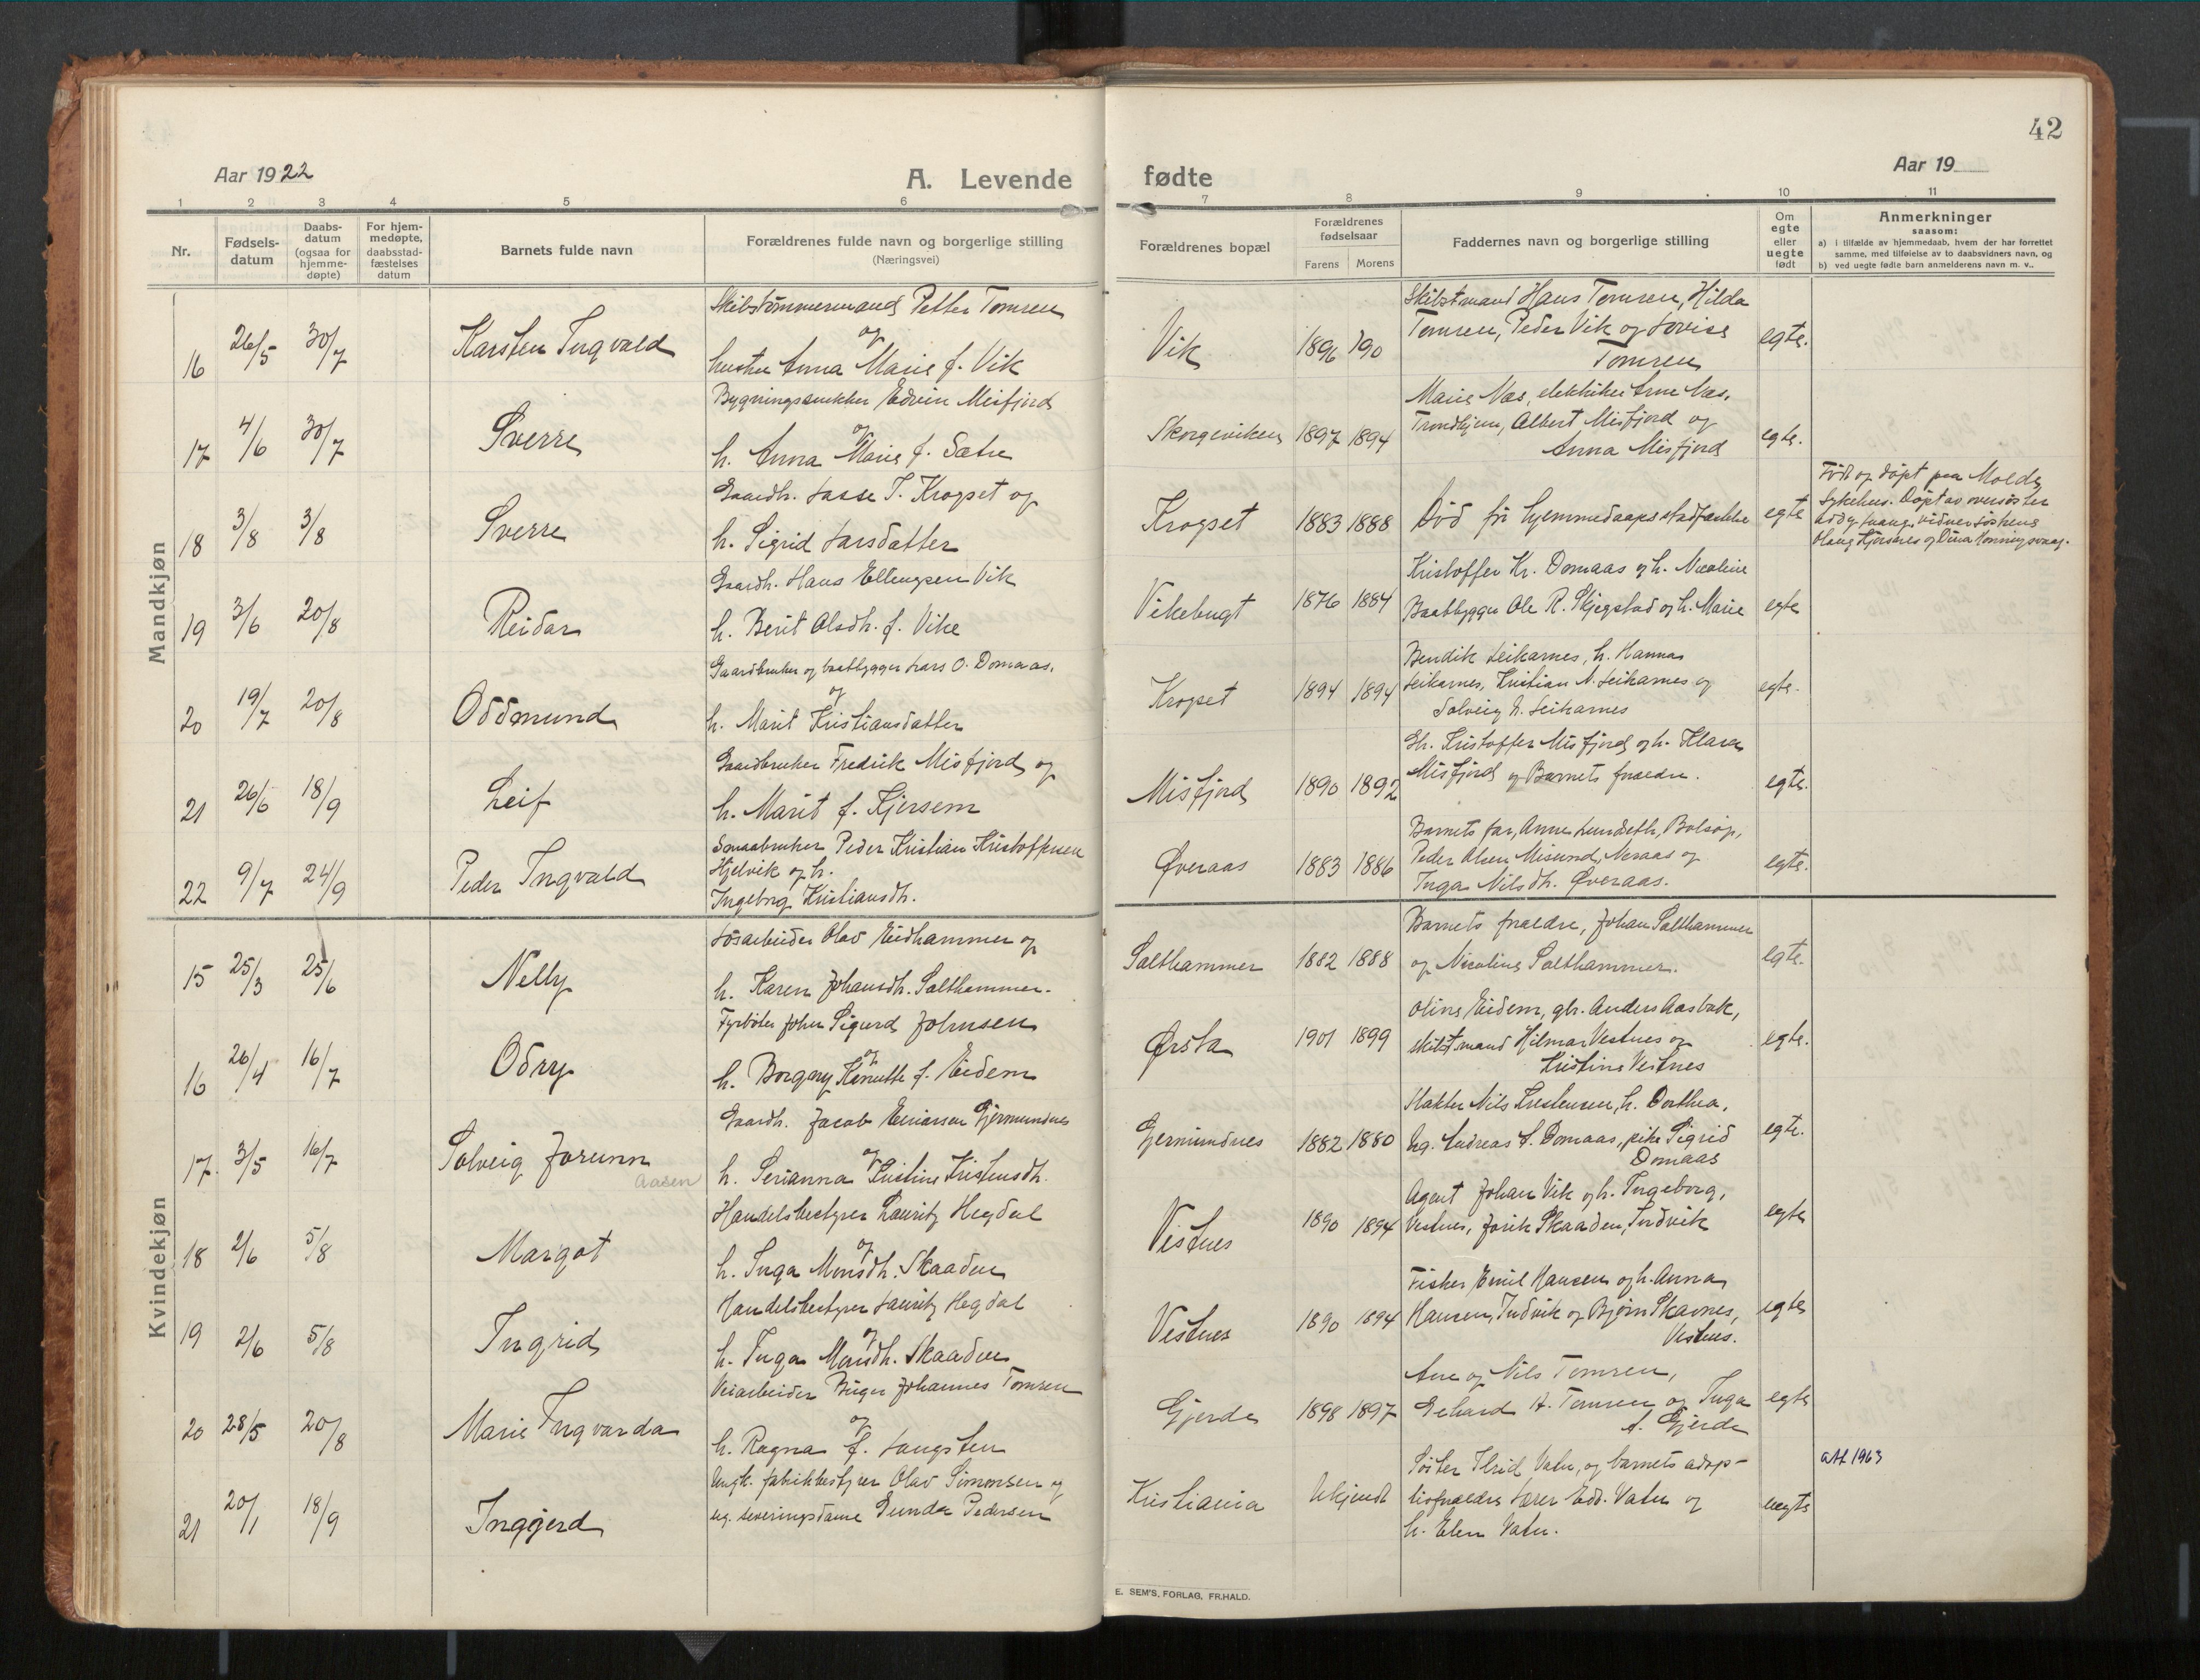 42
Aar 1922
A. Levende fødte
Aar 19
1 2 3 4 5 6 7 8 9 10 11
Nr.
Fødsels-
datum
Daabs-
datum
(ogsaa for
hjemme-
døpte)
For hjem-
medøpte,
daabsstad-
fæstelses
datum
Barnets fulde navn
Forældrenes fulde navn og borgerlige stilling
(Næringsvei)
Forældrenes bopæl
Forældrenes
fødselsaar
Farens Morens
Faddernes navn og borgerlige stilling
Om
egte
eller
uegte
født
Anmerkninger
saasom:
a) i tilfælde av hjemmedaab, hvem der har forrettet
samme, med tilføielse av to daabsvidners navn, og
b) ved uegte fødte barn anmelderens navn m. v..
Mandkjøn
16 26/5 30/7 Karsten Ingvald
Skibstømmermand Petter Tomren
og
hustru Anna Marie f. Vik
Vik 1896 190
Skibstmand Hans Tomren, Hilda
Tomren, Peder Vik og Lovise
Tomren
egte.
17 4/6 30/7 Sverre
Bygningssnekker Edvin Misfjord
og
h. Anna Marie f. Sætre
Skorgeviken 1897 1894
Marie Næs, elektriker Arne Næs,
Trondhjem, Albert Misfjord og
Anna Misfjord
egte.
18 3/8 3/8 Sverre
Gaardbr. Lasse T. Krogset og
h. Sigrid Larsdatter
Krogset 1883 1888
Død før hjemmedaaps stadfæstelse
egte
Født og døpt paa Molde
sykehus. Døpt av oversøster
vidner søstrene
19 3/6 20/8 Reidar
Gaardbr. Hans Ellingsen Vik
h. Berit Olsdtr. f. Vike
Vikebugt 1876 1884
Kristoffer Kr. Domaas og h. Nicoline
Baatbygger Ole R. Skjegstad og h. Marie
egte
20 19/7 20/8 Oddmund
Gaardbruker og baatbygger Lars O. Domaas.
og
h. Marit Kristiansdatter
Krogset 1894 1894
Bendik Leikarnes, h. Hanna
Leikarnes, Kristian N. Leikarnes og
Solveig N. Leikarnes
egte.
21 26/6 18/9 Leif
Gaardbruker Fredrik Misfjord og
h. Marit f. Kjersem
Misfjord 1890 1892
Gbr. Kristoffer Misfjord og h. Klara
Misfjord og Barnets forældre.
egte.
22 9/7 24/9 Peder Ingvald
Smaabruker Peder Kristian Kristoffersen
Hjelvik og h.
Ingeborg Kristiansdtr.
Øveraas 1883 1886
Barnets far, Anne Lundseth, Bolsøy,
Peder Olsen Misund, Neraas og
Inga Nilsdtr. Øveraas.
egte.
Kvindekjøn
15 25/3 25/6 Nelly
Løsarbeider Olav Eidhammer og
h. Karen Johansdtr. Salthammer.
Salthammer 1882 1888
Barnets forældre, Johan Salthammer
og Nicoline Salthammer.
egte.
16 26/4 16/7 Odry
Fyrbøter Johan Sigurd Johnsen
og
h. Borgny Kanutte f. Eidem
Ørsta 1901 1899
Oline Eidem, gbr. Anders Aasbak,
skibstmand Hilmar Vestnes og
Kristine Vestnes
egte.
17. 3/5 16/7 Solveig Jorunn
Aasen
Gaardbr. Jacob Eliassen Gjermundnes
og
h. Serianna Kristine Kristensdtr.
Gjermundnes 1882 1880
Nils Kristensen, h. Dorthea,
Ug. Andreas S. Domaas, pike Sigrid
Domaas
egte.
18 2/6 5/8 Margot
Handelsbestyrer Lauritz Hegdal
og
h. Inga Monsdtr. Skaaden
Vestnes 1890 1894
Agent Johan Vik og h. Ingeborg,
Vestnes, Jorik Skaaden, Indvik
egte
19 2/6 5/8 Ingrid
Handelsbestyrer Lauritz Hegdal
og
h. Inga Monsdtr. Skaaden
Vestnes 1890 1894
Fisker Emil Hansen og h. Anna
Hansen, Indvik og Bjørn Skavnes,
Vestnes.
egte
20 28/5 20/8 Marie Ingvarda
Veiarbeider Birger Johannes Tomren
og
h. Ragna f. Langsten
Gjerde 1898 1897
Ane og Nils Tomren,
Gehard A. Tomren og Inga
A. Gjerde
egte
21 20/1 18/9 Inggjerd
Ungk. fabrikbestyrer Olav Simonsen og
ug. serveringsdame Gunda Pedersen
Kristiania Ukjendt
Søster Ilrid Vatn, og barnets adop-
tivforældre Lærer Edv. Vatn og
h. Elen Vatn.
uegte
att 1963
E. SEM'S. FORLAG, FR.HALD.